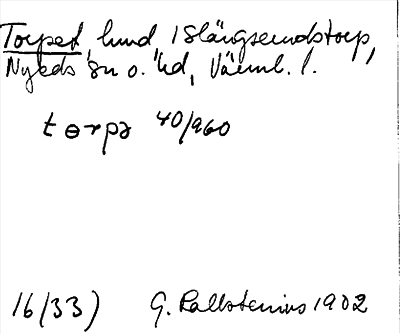 Torpet, hmd i Slängserudstorp,
Nyeds sn o. hd, Värml. l.
tɵrpə 40/960
16/33) G. Kallstenius 1902